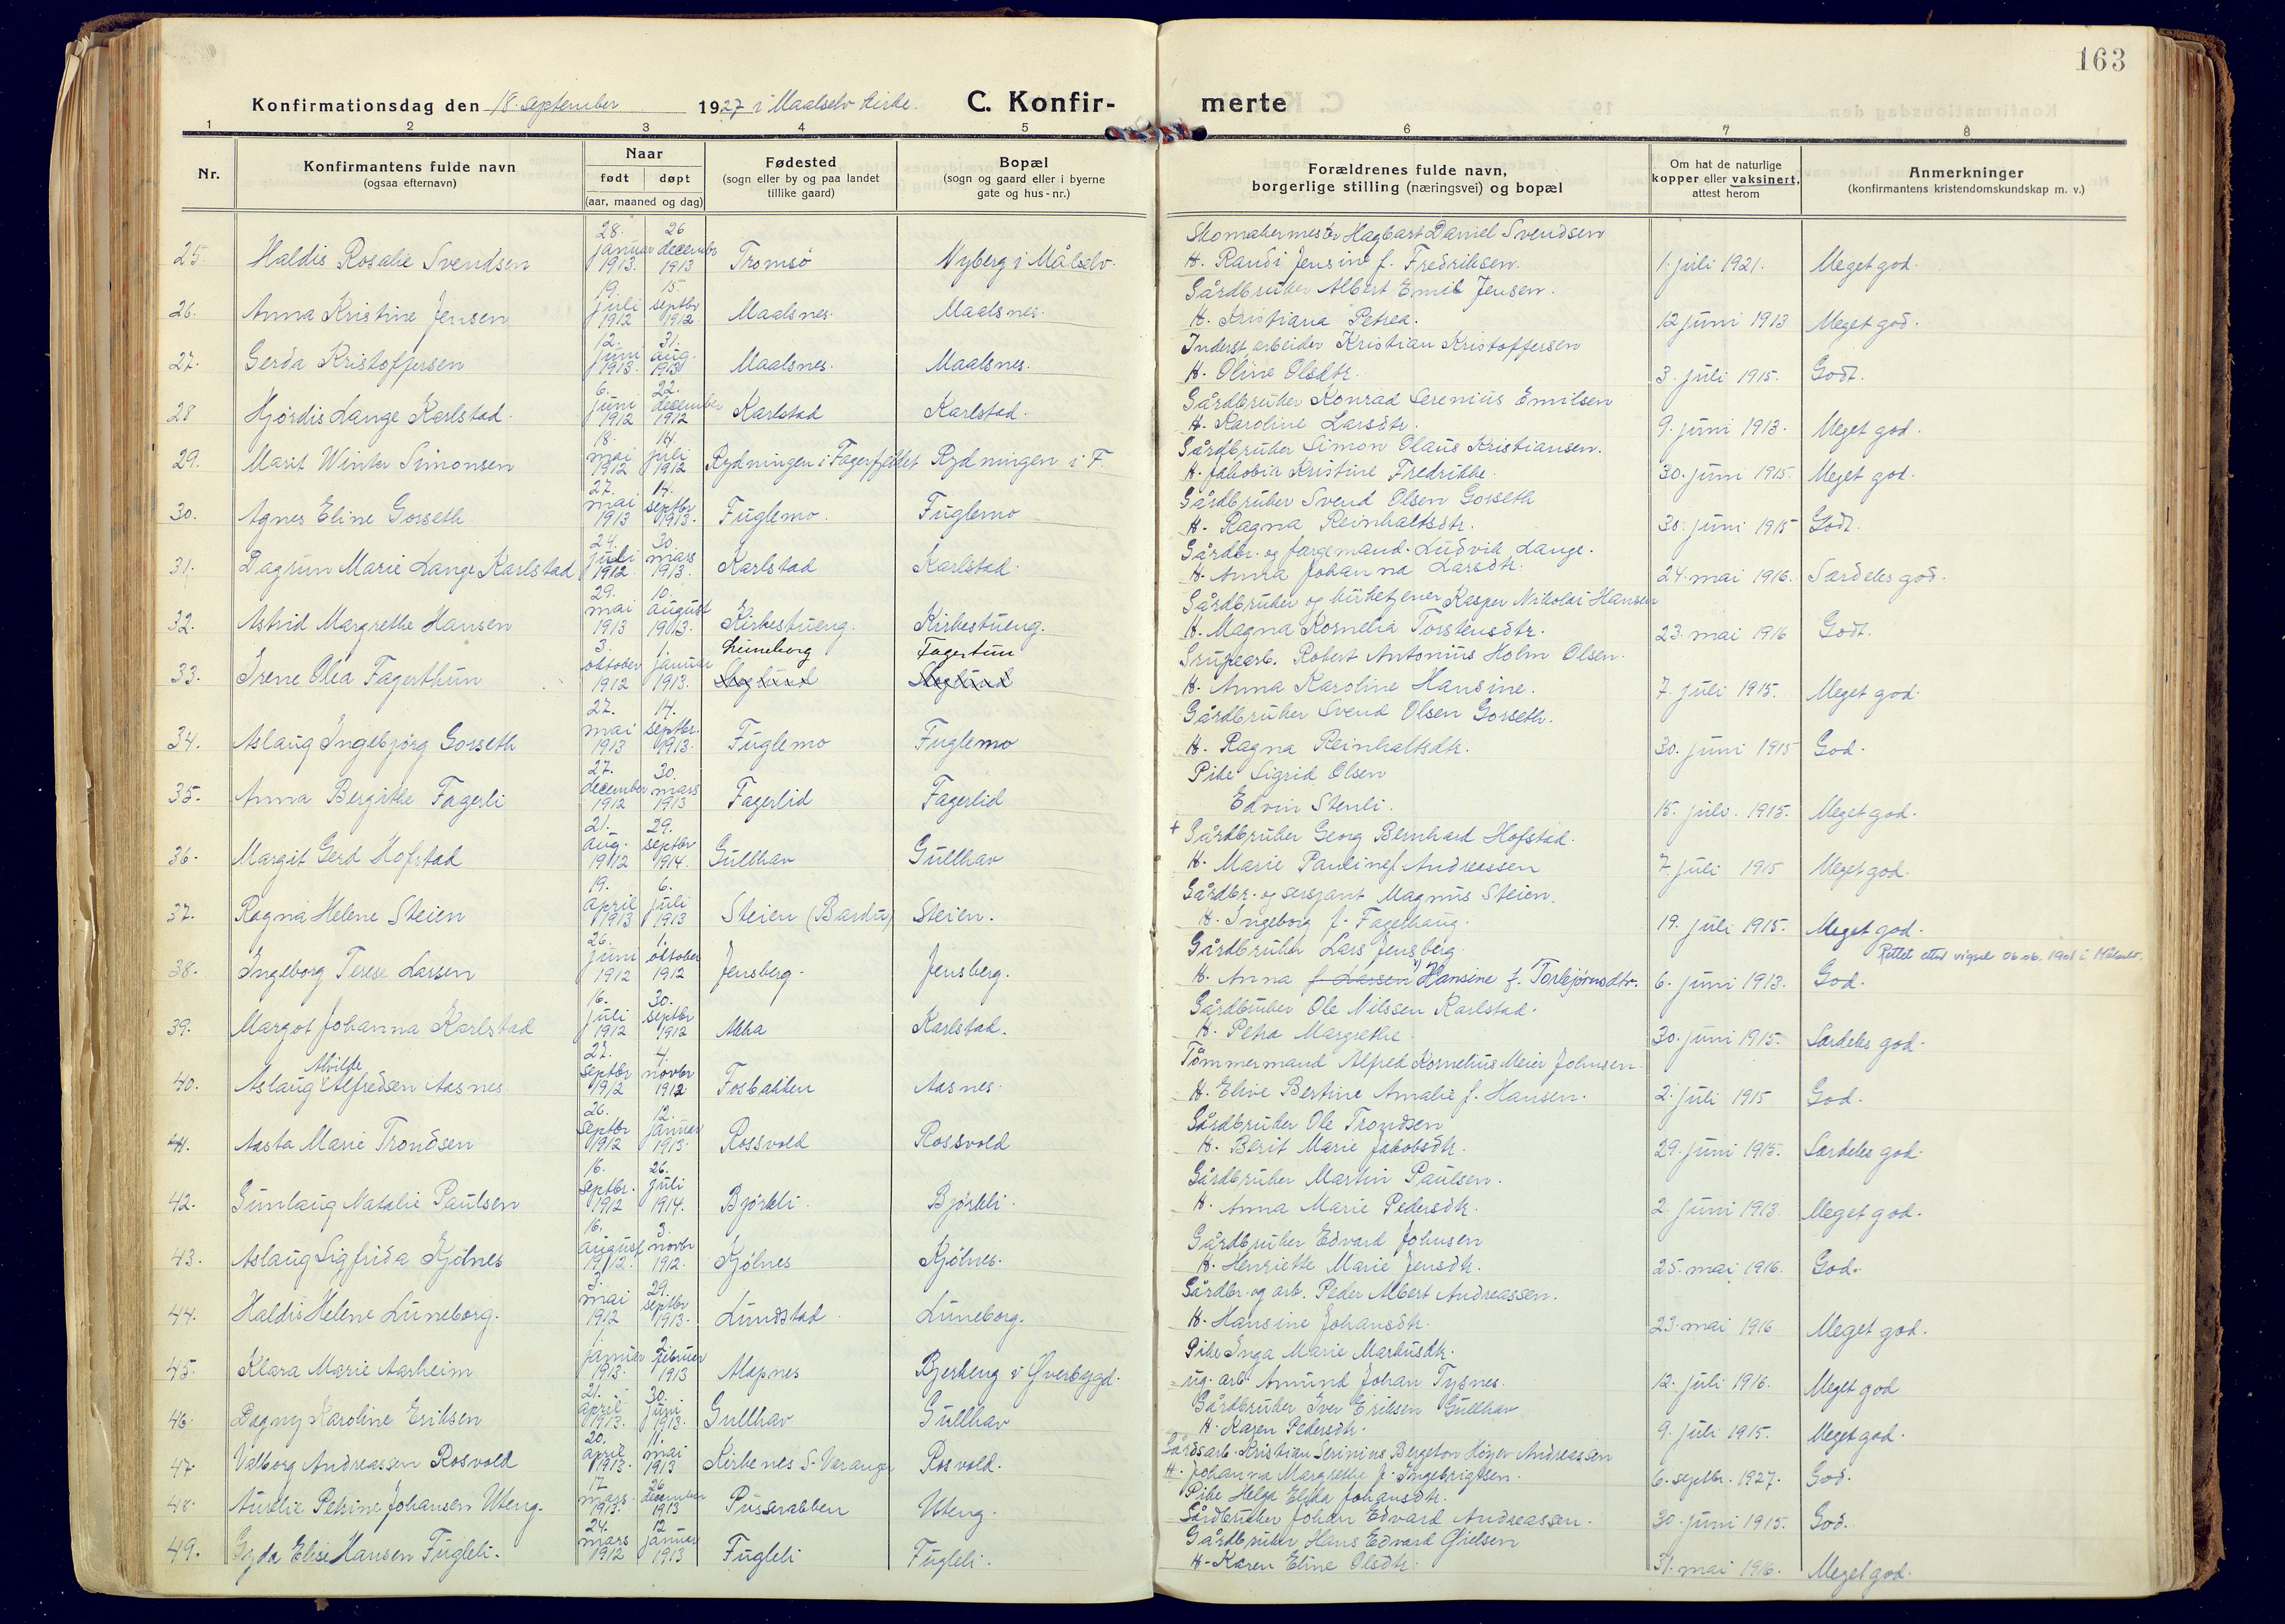 163
Konfirmationsdag den 18. september 1927 i Maalselv kirke. C. Konfir- merte
1 2 3 4 5 6 7 8
Nr. Konfirmantens fulde navn (ogsaa efternavn) Naar født døpt (aar, maaned og dag) Fødested (sogn eller by og paa landet tillike gaard) Bopæl (sogn og gaard eller i byerne gate og hus-nr.) Forældrenes fulde navn, borgerlige stilling (næringsvei) og bopæl Om hat de naturlige kopper eller vaksinert, attest herom Anmerkninger (konfirmantens kristendomskundskap m. v.)
25. Haldis Rosalie Svendsen 28. januar 1913. 26 decembr 1913 Tromsø Nyberg i Målselv. Skomakermester Hagbart Daniel Svendsen
H. Randi Jensine f. Fredriksen. 1. juli 1921. Meget god.
26. Anna Kristine Jensen 19. juli 1912 15. septbr 1912 Maalsnes. Maalsnes. Gårdbruker Albert Emil Jensen.
H. Kristiana Petrea. 12 juni 1913 Meget god.
27. Gerda Kristoffersen 12. juni 1913. 31. aug. 1913 Maalsnes. Maalsnes. Inderst, arbeider Kristian Kristoffersen
H. Oline Olsdtr. 3. juli 1915. Godt.
28 Hjördis Lange Karlstad. 6. juni 1912 22. december 1912 Karlstad Karlstad. Gårdbruker Konrad Serenius Emilsen
H. Karoline Larsdtr. 9. juni 1913. Meget god.
29. Marit Winter Simonsen 18. mai 1912 14. juli 1912 Rydningen i Fagerfjellet Rydningen i F. Gårdbruker Simon Olaus Kristiansen.
H. Jakobia Kristine Fredrikke. 30. juni 1915. Meget god.
30. Agnes Eline Gosseth 27. mai 1913 14. septbr 1913. Fuglemo. Fuglemo Gårdbruker Svend Olsen Gosseth
H. Ragna Reinholtsdtr. 30. juni 1915 Godt.
31. Dagrun Marie Lange Karlstad 24. juli 1912 30. mars 1913. Karlstad Karlstad. Gårdbr. og færgemand. Ludvik Lange.
H. Anna Johanna Larsdtr. 24. mai 1916. Særdeles god.
32. Astrid Margrethe Hansen 29. mai 1913 10. august 1913. Kirkestueng. Kirkestueng. Gårdbruker og kirketjener Kasper Nikolai Hansen
H. Magna Kornelia Torstensdtr. 23. mai 1916 Godt.
33. Irene Olea Fagerthun 3. oktober 1912 1. januar 1913. Luneborg Skoglund Fagertun Skoglund Grupearb. Robert Antonius Holm Olsen.
H. Anna Karoline Hansine. 7. juli 1915. Meget god.
34. Aslaug Ingebjörg Gosseth 27. mai 1913 14. septbr. 1913. Fuglemo Fuglemo Gårdbruker Svend Olsen Gosseth.
H. Ragna Reinholtsdtr. 30. juni 1915 God.
35. Anna Bergithe Fagerli 27. december 1912 30. mars 1913 Fagerlid Fagerlid Pike Sigrid Olsen
Edvin Stenli. 15. juli. 1915. Meget god.
36. Margit Gerd Hofstad 21. aug. 1912 29. septbr 1914. Gullhav Gullhav + Gårdbruker Georg Bernhard Hofstad.
H. Marie Pauline f. Andreassen 7. juli 1915 Meget god.
37. Ragna Helene Steien 19. april 1913 6. juli 1913 Steien (Bardu) Steien. Gårdbr. og sersjant Magnus Steien.
H. Ingeborg f. Fagerhaug. 19. juli 1915. Meget god.
38. Ingeborg Terese Larsen 26. juni 1912 1. oktober 1912 Jensberg. Jensberg. Gårdbruker Lars Jensberg
H. Anna f. Larsen Hansine f. Torbjørnsdtr. 6. juni 1913. God. Rettet etter vigsel 06.06. 1901 i Målselv.
39. Margot Johanna Karlstad 16. juli 1912 30. septbr 1912 Moha Karlstad. Gårdbruker Ole Nilssen Karlstad.
H. Petra Margrethe. 30. juni 1915. Særdeles god.
40. Aslaug Alvilde Alfredsen Aasnes. 27. septbr 1912 4. novbr 1912 Fosbakken Aasnes. Tömmermand Alfred Kornelius Meier Johnsen.
H. Elive Bertine Amalie f. Hansen. 2. juli 1915 God.
41. Aasta Marie Trondsen 26. septbr 1912 12. januar 1913. Rossvold Rossvold Gårdbruker Ole Trondsen
H. Berit Marie Jakobsdtr. 29. juni 1915. Særdeles god.
42. Gunlaug Natalie Paulsen 16. septbr. 1912 26. juli 1914. Björkli. Björkli. Gårdbruker Martin Paulsen.
H. Anna Marie Pedersdtr. 2. juni 1913. Meget god.
43. Aslaug Sigfrida Kjölnes 16. august 1912. 3. novbr 1912. Kjölnes Kjölnes. Gårdbruker Edvard Johnsen
H. Henriette Marie Jensdtr. 25. mai 1916. God.
44. Haldis Helene Luneborg. 3. mai 1912 29. septbr 1913. Lundstad Luneborg. Gårdbr. og arb. Peder Albert Andreassen.
H. Hansine Johansdtr. 23. mai 1916 Meget god.
45. Klara Marie Aarheim 1. januar 1913. 2. februar 1913 Alapnes Bjerkeng i Øverbygd. Pike Inga Marie Markusdtr.
ug. arb. Amund Johan Tysnes. 12. juli 1916. Meget god
46. Dagny Karoline Eriksen 21. april 1913. 30. juni 1913. Gullhav Gullhav Gårdbruker Iver Eriksen Gullhav
H. Karen Pedersdtr. 9. juli 1915. Meget god.
47. Valborg Andreassen Rosvold 20. april 1913. 11. mai 1913 Kirkenes S-Varanger Rosvold. Gårdsarb. Kristian Serinius Bergeton Høyer Andreassen
H. Johanna Margrethe f. Ingebrigtsen. 6. septbr. 1927. God.
48. Aurelie Petrine Johansen Uteng. 17. mars 1913. 26 december 1913 Pussrabben Uteng. Pike Helga Elida Johansdtr.
Gårdbruker Johan Edvard Andreassen. 30. juni 1915. God.
49. Gyda Elise Hansen Fugleli. 24. mars 1912 12 januar 1913 Fugleli Fugleli. Gårdbruker Hans Edvard Gjelsen
H. Karen Eline Olsdtr. 31. mai 1916. Meget god.